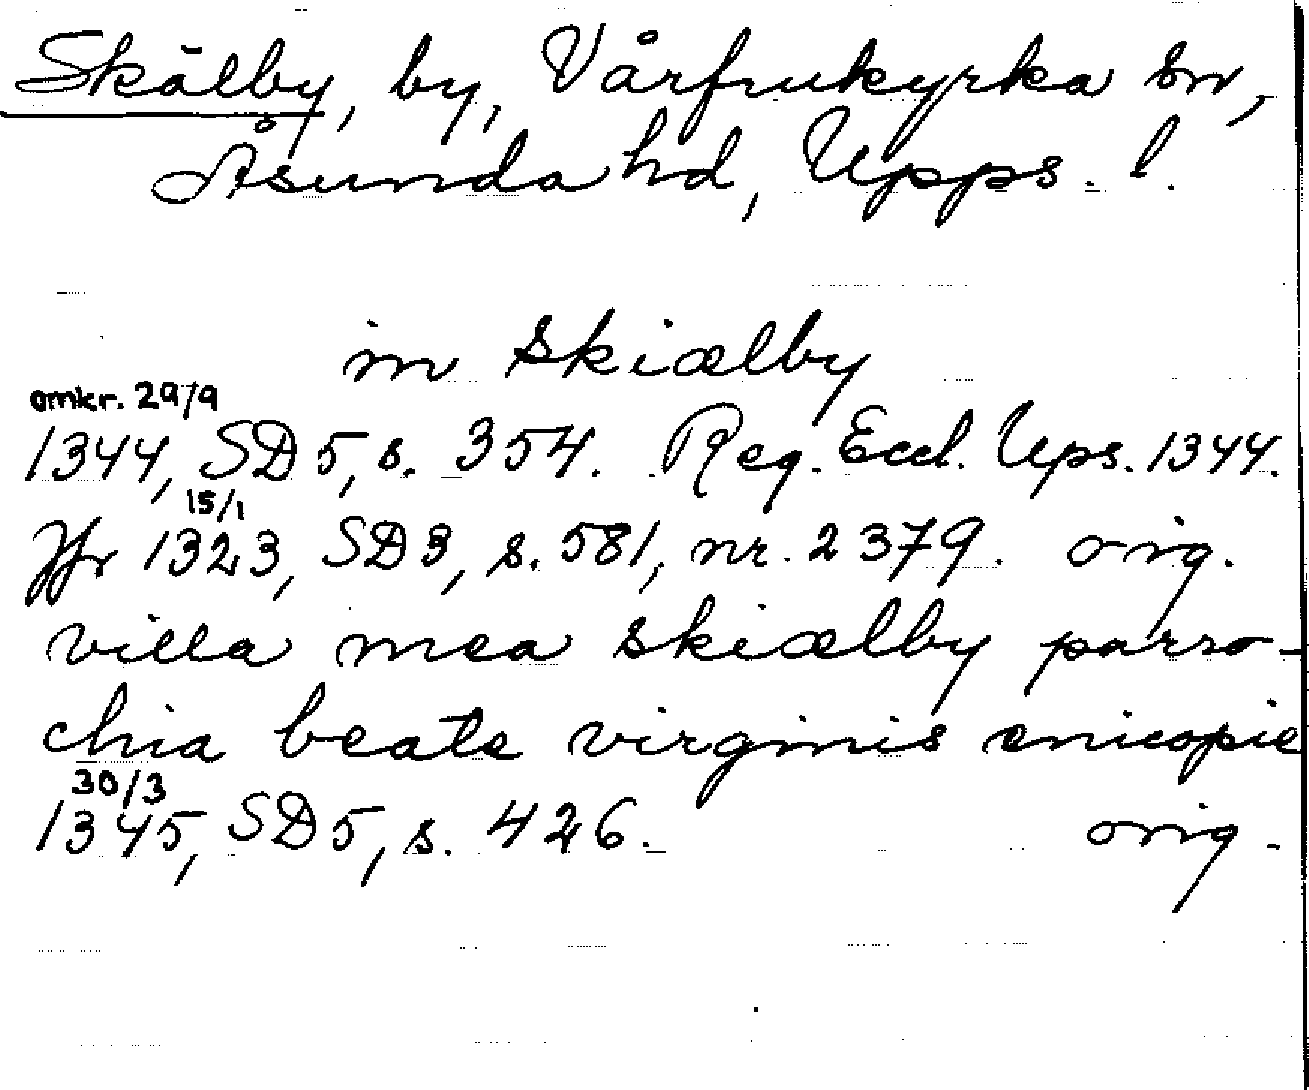 Skälby, by, Vårfrukyrka sn,
Åsunda hd, Upps. l.
in skiælby
omkr. 29/9
1344, SD 5, s. 354. Reg. Eccl. Ups. 1344.
15/1
Jfr 1323, SD 3, s. 581, nr. 2379. orig.
villa mea skiælby parro-
chia beate virginis enicopie
30/3
1345, SD 5, s. 426. orig.